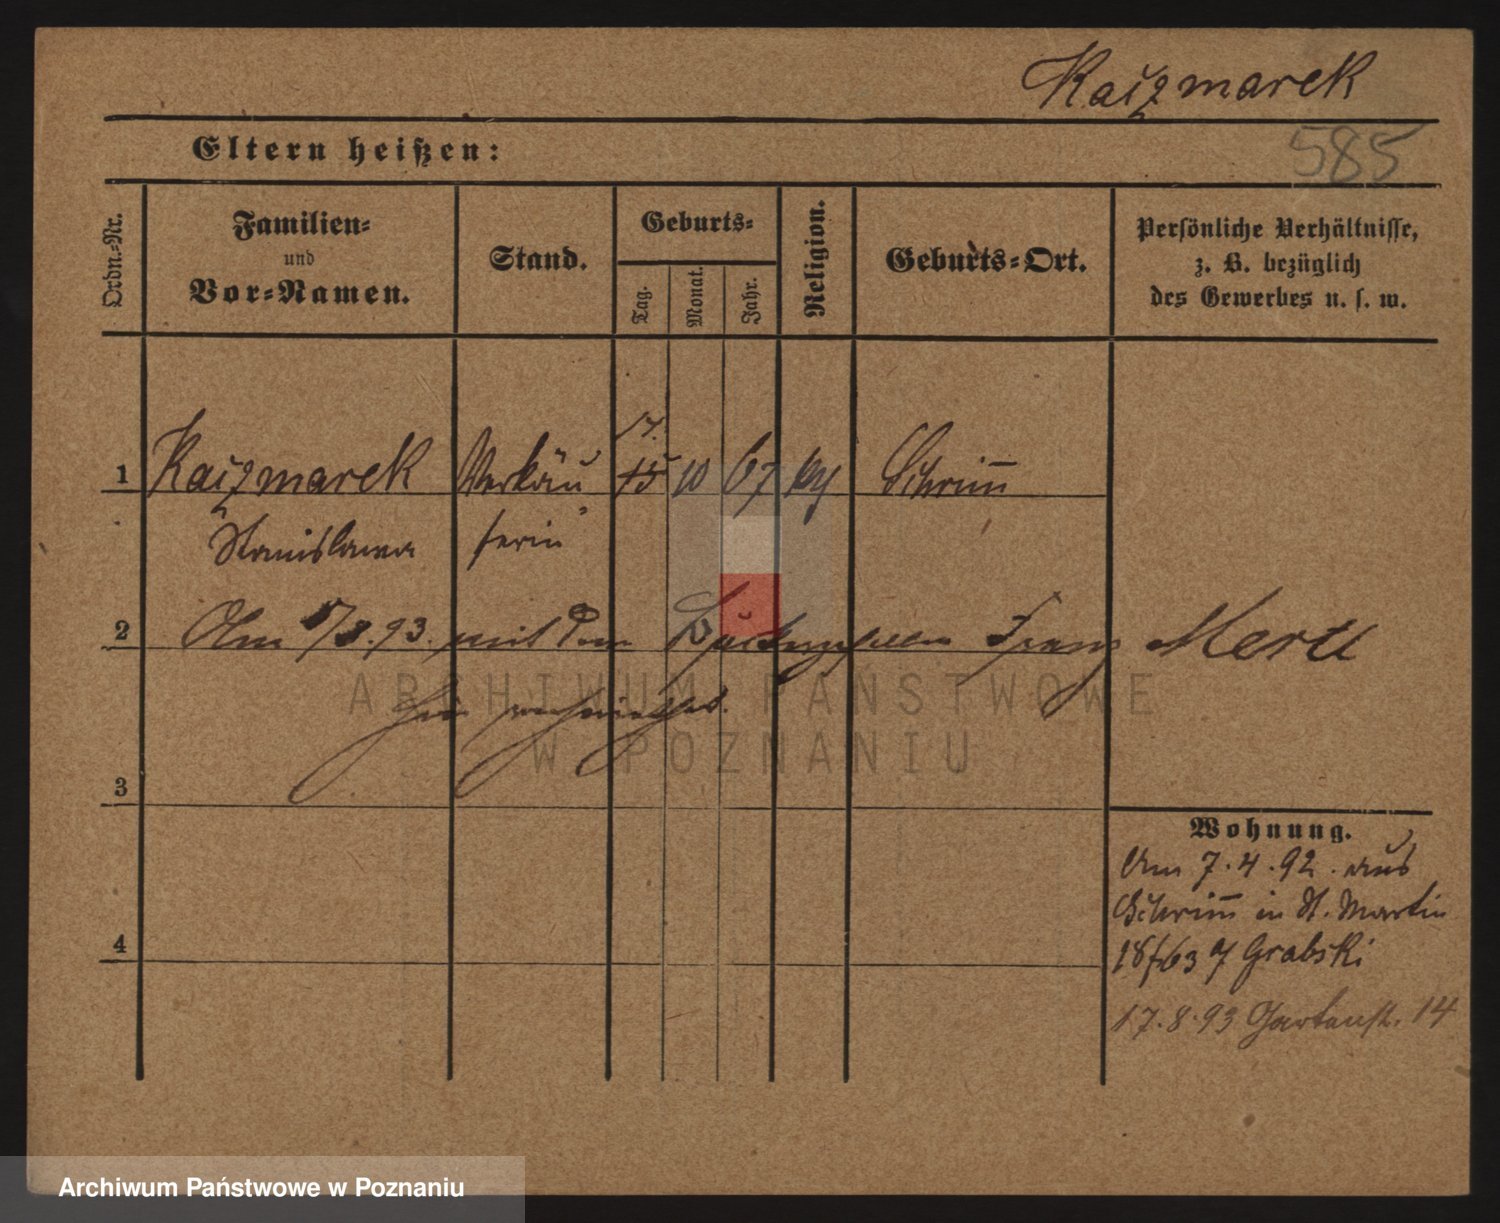 Kaczmarek
585
Eltern heißen:
Ordn.-Nr.
Familien-
und
Vor-Namen.
Stand.
Geburts-
Tag.
Monat.
Jahr.
Religion.
Geburts-Ort.
Persönliche Verhältnisse,
z. B. bezüglich
des Gewerbes u. s. w.
17.
1 Kaczmarek Verkäu 15 10 67 Schrim̅
Stanislawa ferin
2 Am 5/8.93. mit dem Franz Mertl
ARCHIWUM PAŃSTWOWE
W POZNANIU
hier
3
Wohnung.
Am 7.4.92. aus
Schrim̅ in St. Martin
18/63 Grabski
4
17.8.93 Gartenstr. 14
Archiwum Państwowe w Poznaniu